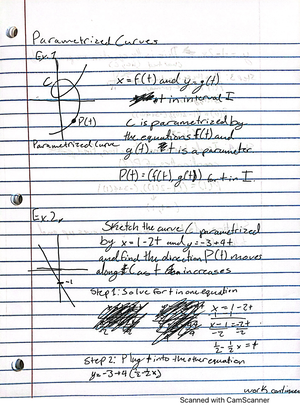 Parametrized Curves
Ex. 1
x=f(t) and y=g(t)
t in interval I
C
C is parametrized by
the equations f(t) and
g(t). t is a parameter.
P(t)
Parametrized curve
P(t)=(f(t), g(t)) for t in I.
Ex. 2.
Sketch the curve C parametrized
by x=1-2t and y=-3+4t
and find the direction P(t) moves
along C as t increases
-1
Step 1: Solve for t in one equation
x=1-2t
x-1=-2t
-2 -2
1/2-1/2x=t
Step 2: Plug t into the other equation
y=-3+4(1/2-1/2x)
work continues
Scanned with CamScanner